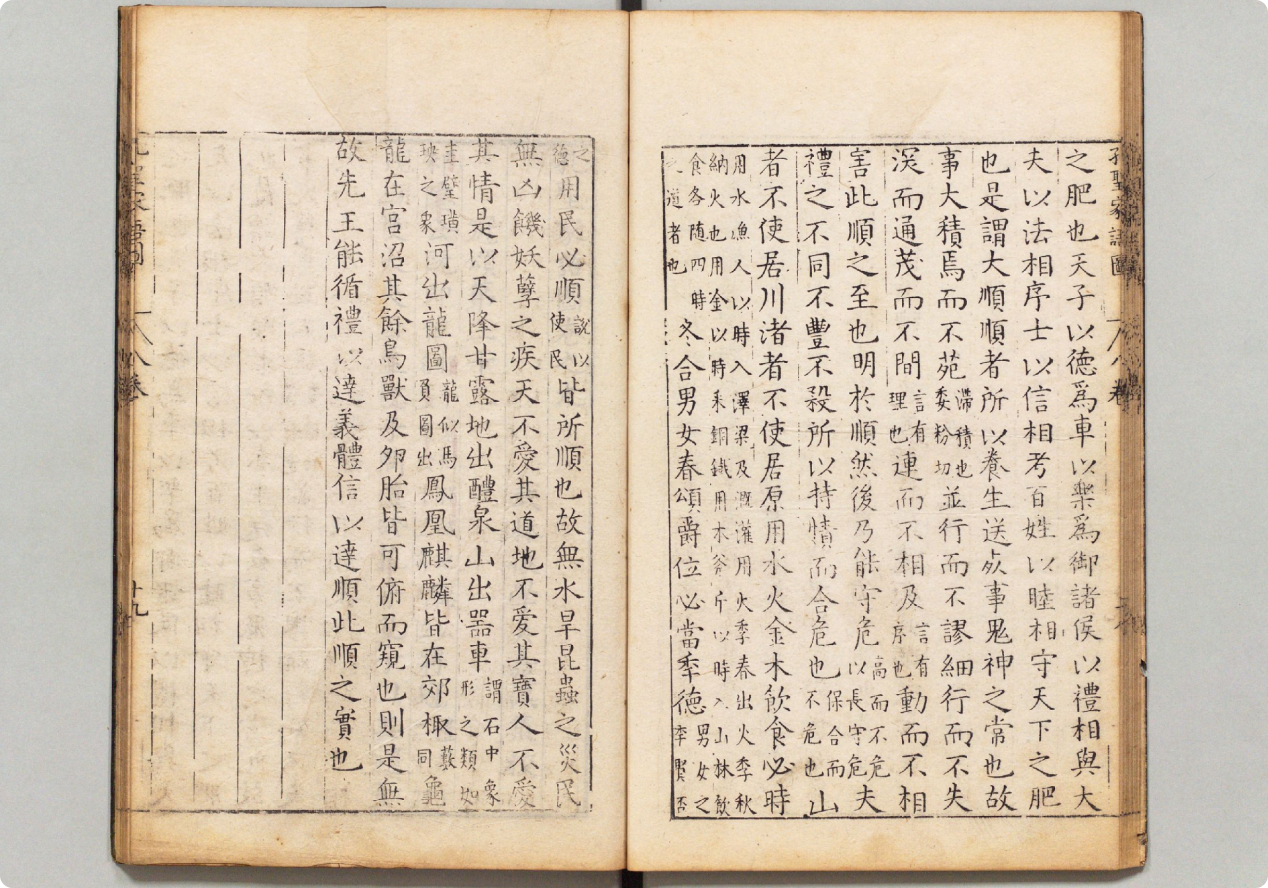 孔聖家語圖 八卷
之肥也天子以德爲車以樂爲御諸侯以禮相與大
夫以法相序士以信相考百姓以睦相守天下之肥
也是謂大順順者所以養生送死事鬼神之常也故
事大積焉而不苑滯積也委粉切並行而不謬細行而不失
深而通茂而不間言有理也連而不相及言有序也動而不相
害此順之至也明於順然後乃能守危高而不危以長守危夫
禮之不同不豐不殺所以持情而合危也保合而不危也山
者不使居川渚者不使居原用水火金木飲食必時
用水漁人以時入澤梁及溉灌用火季春出火季秋
納火也用金以時采銅鐵用木斧斤以時入山林飲
食各随四時之道者也冬合男女春頌爵位必當年德男女之年賢否
之德用民必順說以使民皆所順也故無水旱昆蟲之災民
無凶饑妖孽之疾天不愛其道地不愛其寶人不愛
其情是以天降甘露地出醴泉山出器車謂石中象形之類如
圭璧璜玦之象河出龍圖龍似馬負圖出鳳凰麒麟皆在郊棷藪同龜
龍在宮沼其餘鳥獸及卵胎皆可俯而窺也則是無
故先王能循禮以達義體信以達順此順之實也
孔聖家語圖 八卷 十九